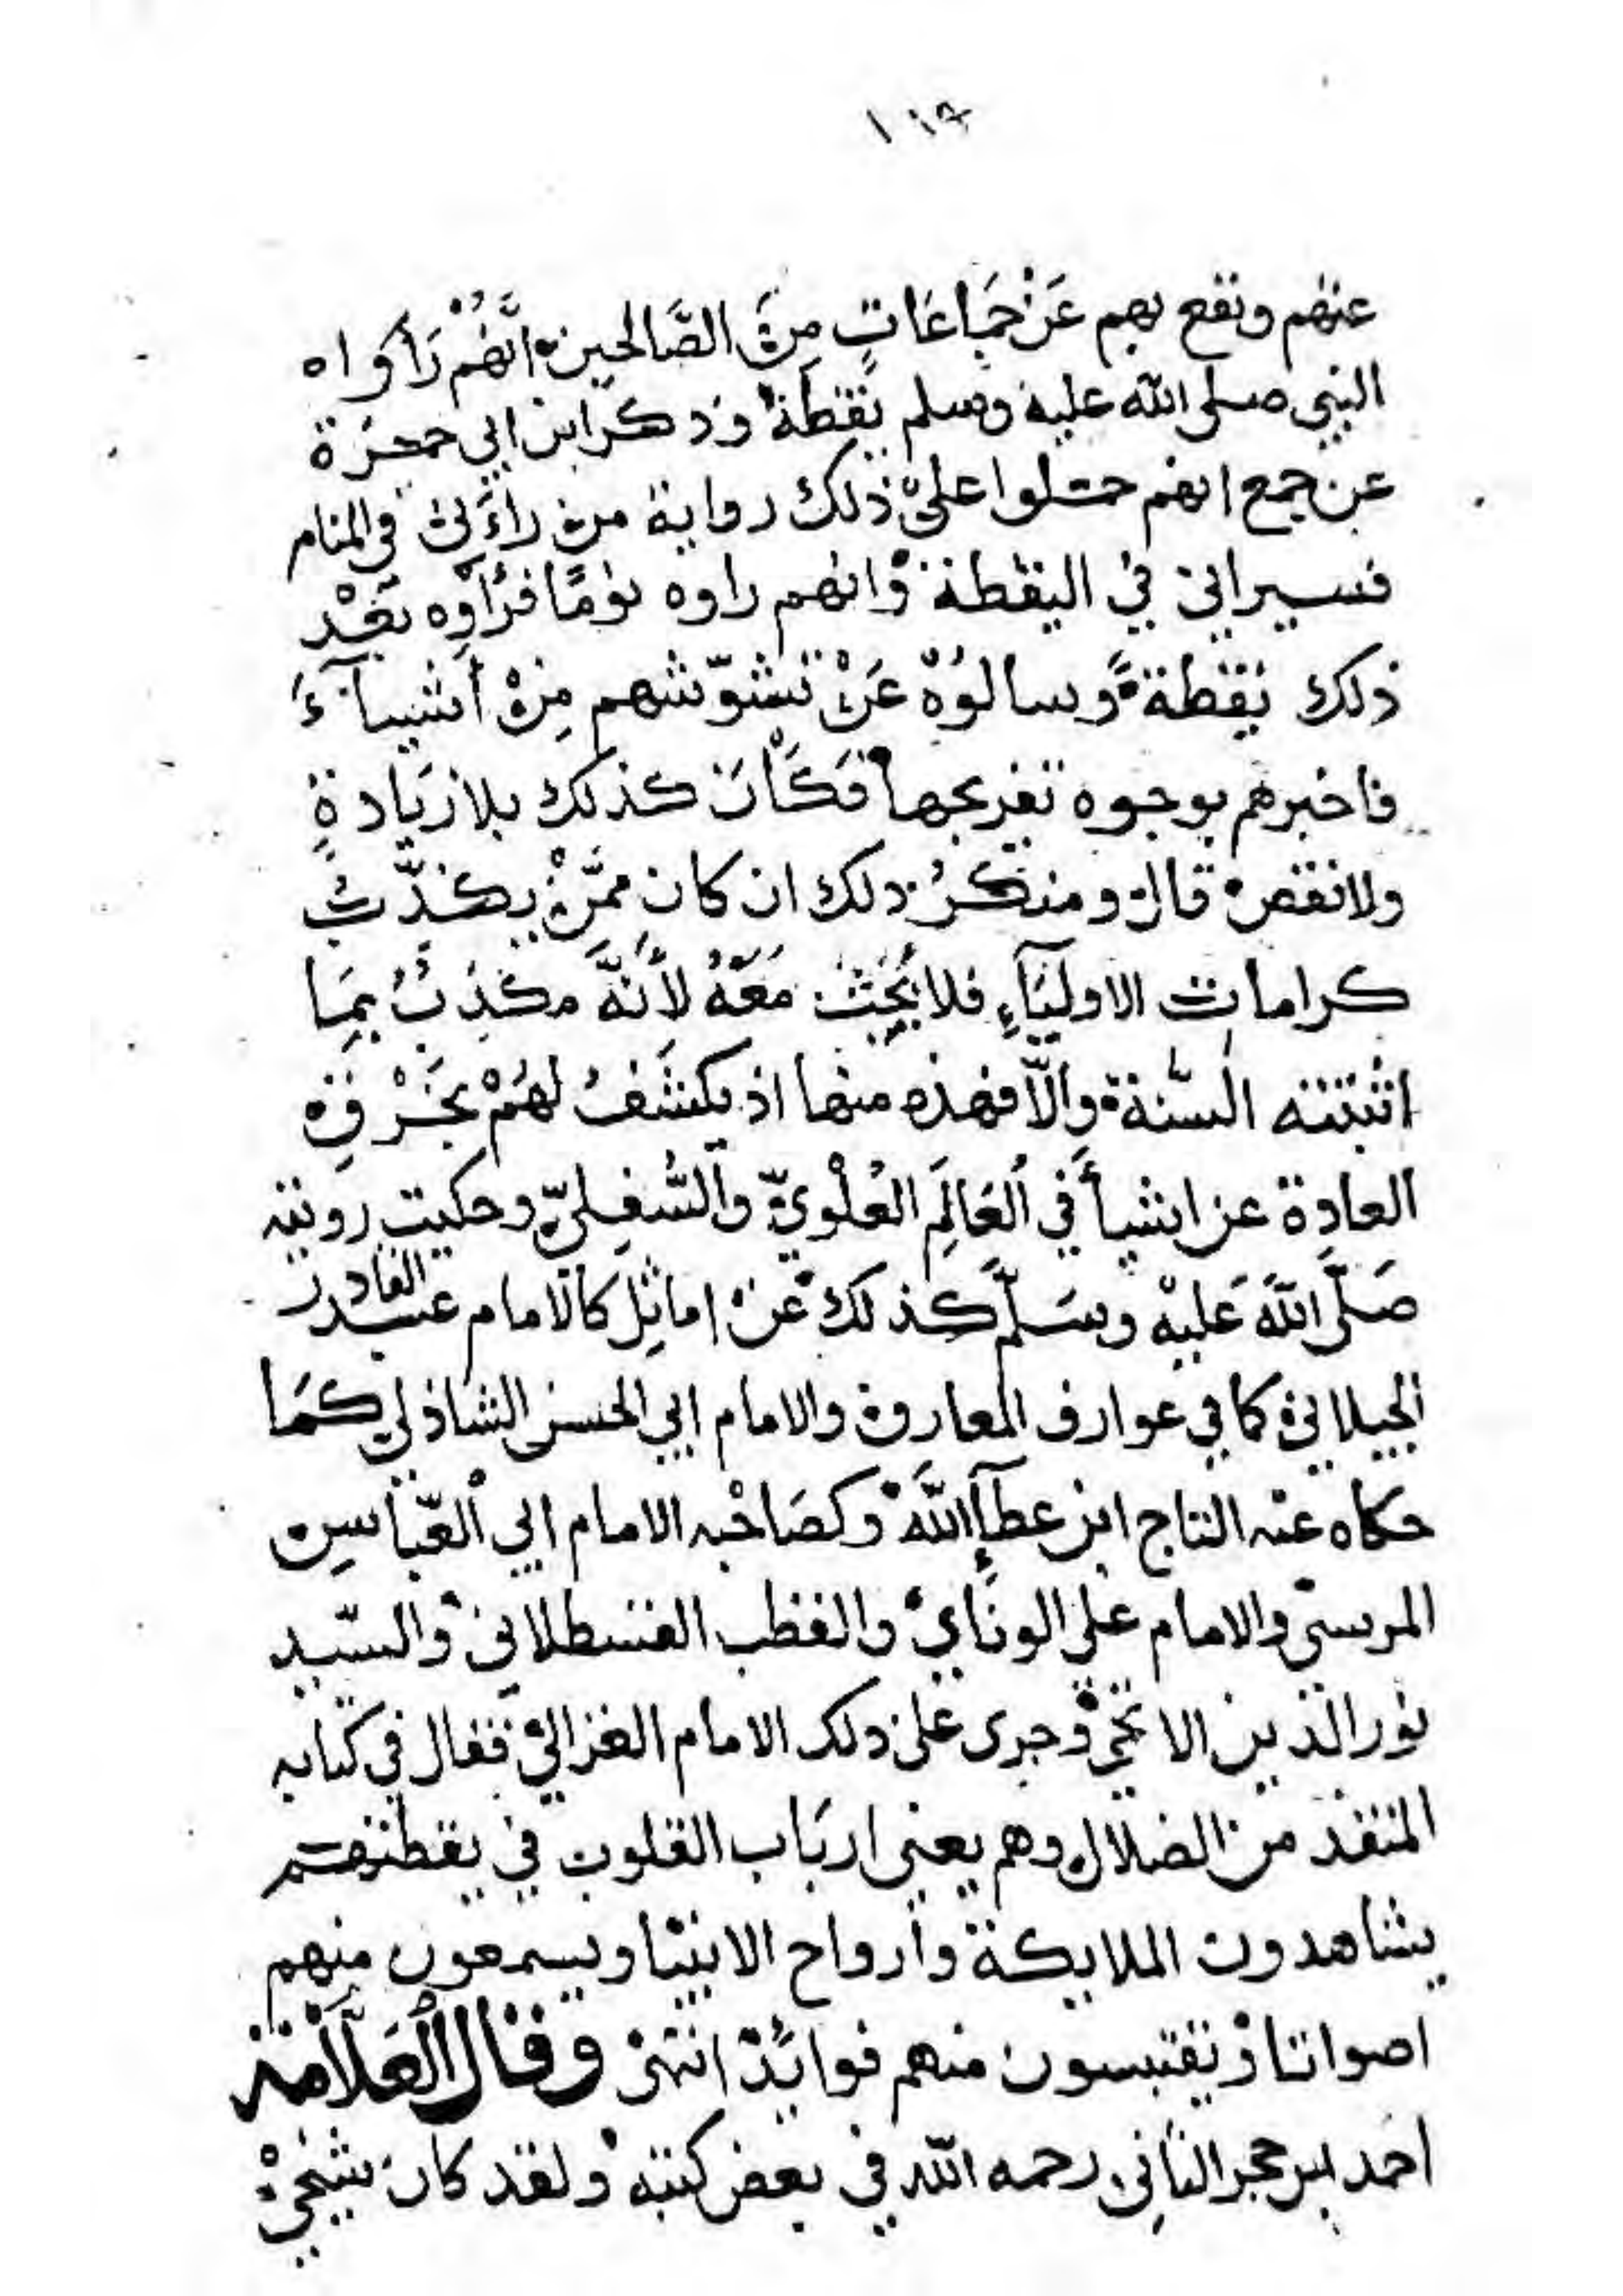 ١١٩
عنهم ونفع بهم عَنْ جَمَاعَاتٍ مِنَ الصَّالحين انَّهُمْ رَأَوا ه
النبي صلى الله عليه وسلم يقظة وذكر ابن ابي حمزة
عن جمع انهم حملوا على ذلك رواية من راءَني في المنام
فسيراني في اليقظة وانهم راوه نومًا فرَأَوه بَعْد
ذلك يقظةً وسالوُهُ عَنْ تشوّشهم مِنْ أشيآءَ
فاخبرهم بوجوه تفريجها فَكَانَ كذلك بلا زيَادةٍ
ولا نقص قال ومنكرُ ذلك ان كان ممَّنْ يكذّبُ
كرامات الاوليَآءِ فلا يُبحَث مَعَهُ لأَنَّهُ مكذِبٌ بمَا
اثبتته السّنة وَالّا فهذه منها اذ يكشَفُ لهُمْ بخَرْقِ
العادِة عن اشيأَ في العَالَمِ العُلْويّ والسُّفِليّ وحكيت رويته
صَلَّى اللهَ عَليْهِ وسَلَّم كذلك عَنْ اماثِل كالامام عبد القادر
الجيلاني كما في عوارف المعارف والامام ابي الحسن الشاذلي كمَا
حكاه عنه التاج ابن عطآءِ اللهَ وكصَاحْبه الامام ابي العبّاسِ
المرسيّ والامام علي الوفَاي والقطب القسطلاني والسّيد
نور الدين الايجي وجرى على ذلك الامام الغزالي فقال في كتابه
المنقذ من الضلال وهم يعني اربَاب القلوب في يقظتهم
يشاهدون الملايكة وأرواح الانبيا ويسمعون منهم
اصواتا ويقتبسون منهم فوائد انتهى وقال العَلَّامَة
احمد بن حجر الثاني رحمه الله في بعض كتبه ولقد كان شيخي